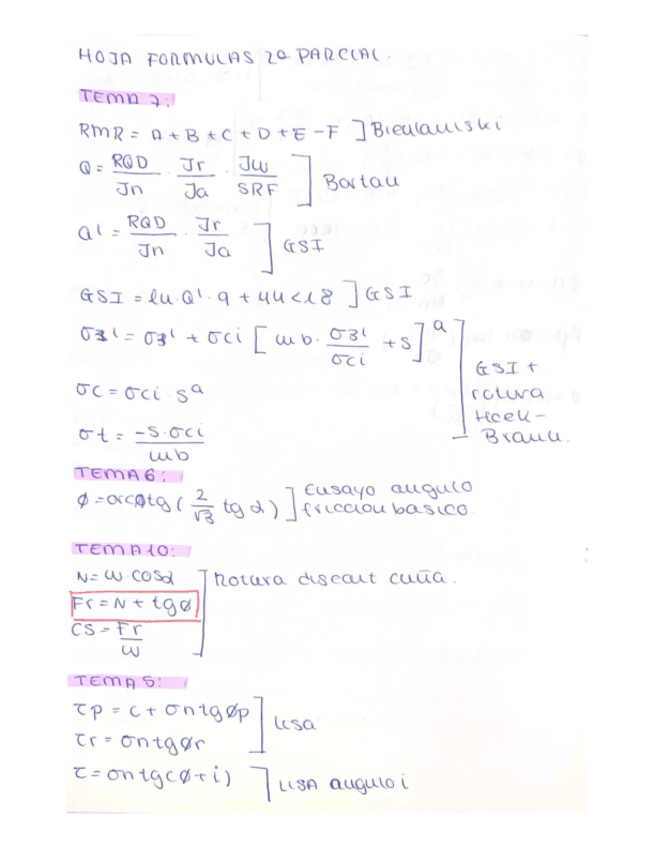 HOJA FORMULAS 2º PARCIAL.
TEMA 7:
RMR = A + B + C + D + E - F ] Bieniawiski
Q = RQD/Jn · Jr/Ja · Jw/SRF ] Bartau
Q' = RQD/Jn · Jr/Ja ] GSI
GSI = ln · Q' · 9 + 44 < 18 ] GSI
σ3' = σ3' + σci [ mb · σ3'/σci + s ]^a
σc = σci · s^a
σt = -s·σci/mb
GSI +
rotura
Hoek-
Brown.
TEMA 6:
φ = arcotg ( 2/√3 tg α ) ] Ensayo angulo
friccion basico.
TEMA 10:
N = W · cosα ] Rotura discont cuña.
Fr = N + tgφ
CS = Fr/W
TEMA 5:
τp = c + σn tgφp ] lisa
τr = σn tgφr
τ = σn tg(φ + i) ] LISA angulo i